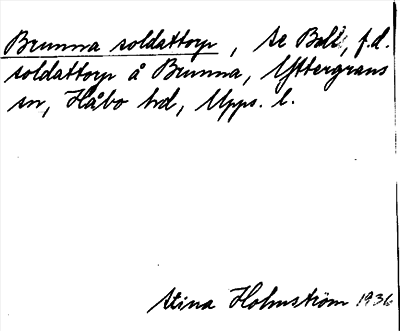 Brunna soldattorp, se Ball, f.d.
soldattorp å Brunna, Yttergrans
sn, Håbo hd, Upps. l.
Stina Holmström 1936